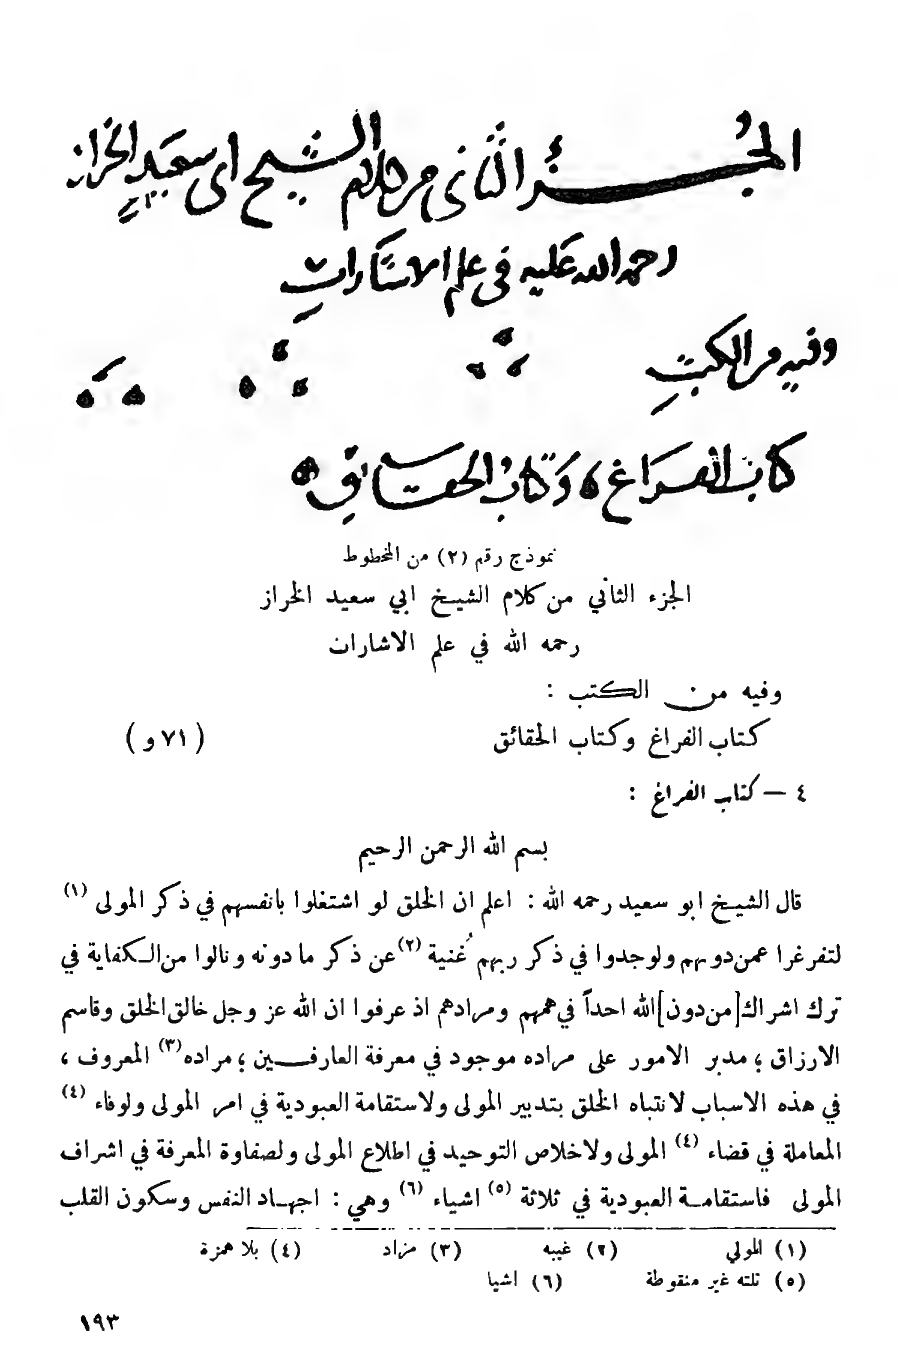 الجزء الثاني من كلام الشيخ ابى سعيد الخراز
رحمه الله عليه فى علم الاشارات
وفيه من الكتب
كتاب الفراغ وكتاب الحقايق
نموذج رقم (٢) من المخطوط
الجزء الثاني من كلام الشيخ ابي سعيد الخراز
رحمه الله في علم الاشارات
وفيه من الكتب :
كتاب الفراغ وكتاب الحقائق (٧١ و)
٤ – كتاب الفراغ :
بسم الله الرحمن الرحيم
قال الشيخ ابو سعيد رحمه الله : اعلم ان الخلق لو اشتغلوا بانفسهم في ذكر المولى (١)
لتفرغوا عمن دونهم ولوجدوا في ذكر ربهم غُنية (٢) عن ذكر ما دونه ونالوا من الكفاية في
ترك اشراك [من دون] الله احداً في هممهم ومرادهم اذ عرفوا ان الله عز وجل خالق الخلق وقاسم
الارزاق ؛ مدبر الامور على مراده موجود في معرفة العارفين ؛ مراده (٣) المعروف ،
في هذه الاسباب لانتباه الخلق بتدبير المولى ولاستقامة العبودية في امر المولى ولوفاء (٤)
المعاملة في قضاء (٤) المولى ولاخلاص التوحيد في اطلاع المولى ولصفاوة المعرفة في اشراف
المولى فاستقامة العبودية في ثلاثة (٥) اشياء (٦) وهي : اجهاد النفس وسكون القلب
(١) المولي (٢) غيبه (٣) مزاد (٤) بلا همزة
(٥) ثلثه غير منقوطة (٦) اشيا
١٩٣